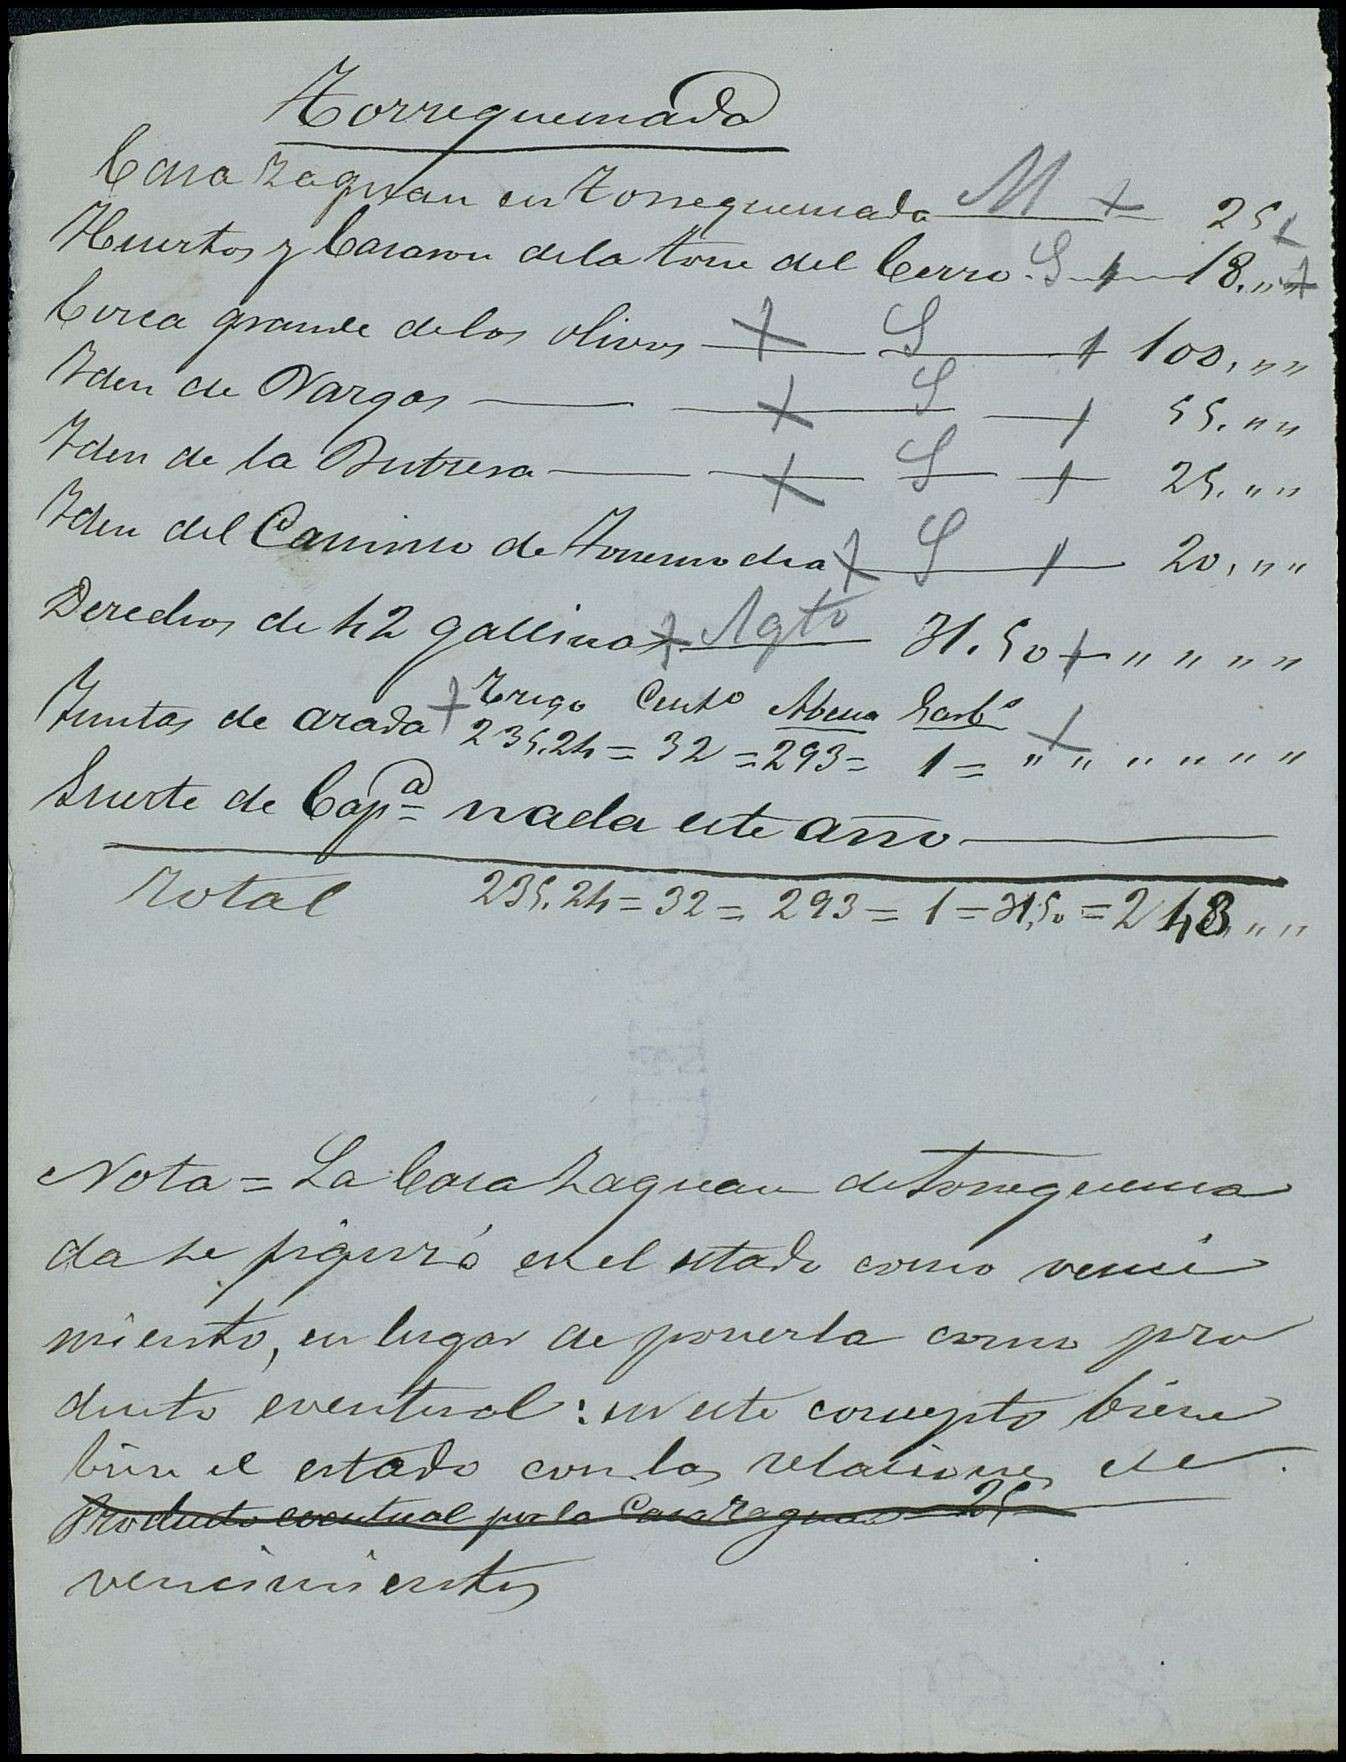 Torrequemada
Casa Zaguan en Torrequemada M + 25 +
Huertos y Casaron de la torre del Cerro. S + 18. „ +
Cerca grande de los olivos + S + 100. „ „
Iden de Vargas + S + 55. „ „
Iden de la + S + 25. „ „
Iden del Camino de Torremocha + S + 20. „ „
Derechos de 42 gallinas + Agto 31.50 + „ „ „ „
Trigo Cento Abena Garbs
Juntas de arada + 235.24 = 32 = 293 = 1 = „ + „ „ „ „ „
Suerte de Capa = nada este año
Total 235.24 = 32 = 293 = 1 = 31,50 = 243, „ „
Nota = La Casa Zaguan de Torrequema
da se figuró en el estado como venci
miento, en lugar de ponerla como pro
ducto eventual: en este concepto biene
bien el estado con las relaciones de
Producto eventual por la Casa Zaguan = 25
vencimientos